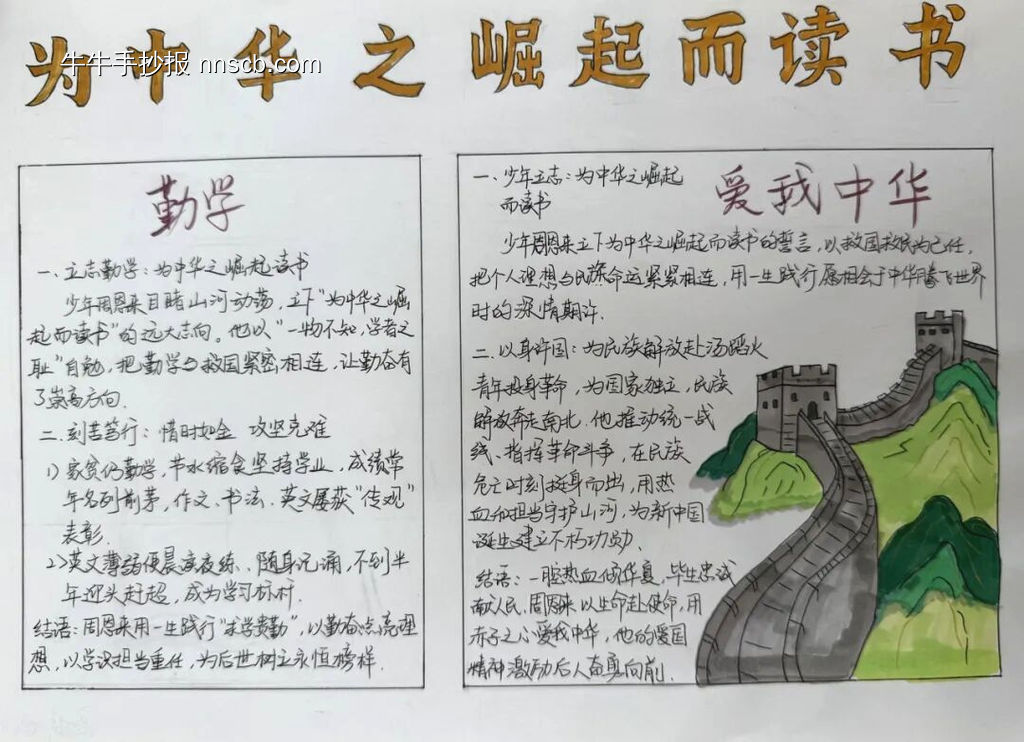 为中华之崛起而读书
牛牛手抄报 nnscb.com
勤学
一、立志勤学：为中华之崛起读书
少年周恩来目睹山河动荡，立下"为中华之崛
起而读书"的远大志向。他以"一物不知，学者之
耻"自勉，把勤学与救国紧密相连，让勤奋有
了崇高方向.
二.刻苦笃行：惜时如金 攻坚克难
1）家贫仍勤学，节水缩食坚持学业，成绩常
年名列前茅，作文、书法、英文屡获"传观"
表彰.
2>英文薄弱便晨读夜练、随身记诵，不到半
年迎头赶超，成为学习标杆.
结语：周恩来用一生践行"求学贵勤"，以勤奋点亮理
想，以学识担当重任，为后世树立永恒榜样.
爱我中华
一、少年立志：为中华之崛起
而读书
少年周恩来立下为中华之崛起而读书的誓言，以救国救民为己任，
把个人理想与民族命运紧紧相连，用一生践行愿相会于中华腾飞世界
时的深情期许.
二.以身许国：为民族解放赴汤蹈火
青年投身革命，为国家独立，民族
解放奔走南北.他推动统一战
线、指挥革命斗争，在民族
危亡时刻挺身而出，用热
血和担当守护山河，为新中国
诞生建立不朽功勋、
结语：一腔热血倾华夏，毕生忠诚
献人民.周恩来以生命赴使命，用
赤子之心爱我中华，他的爱国
精神激励后人奋勇向前.